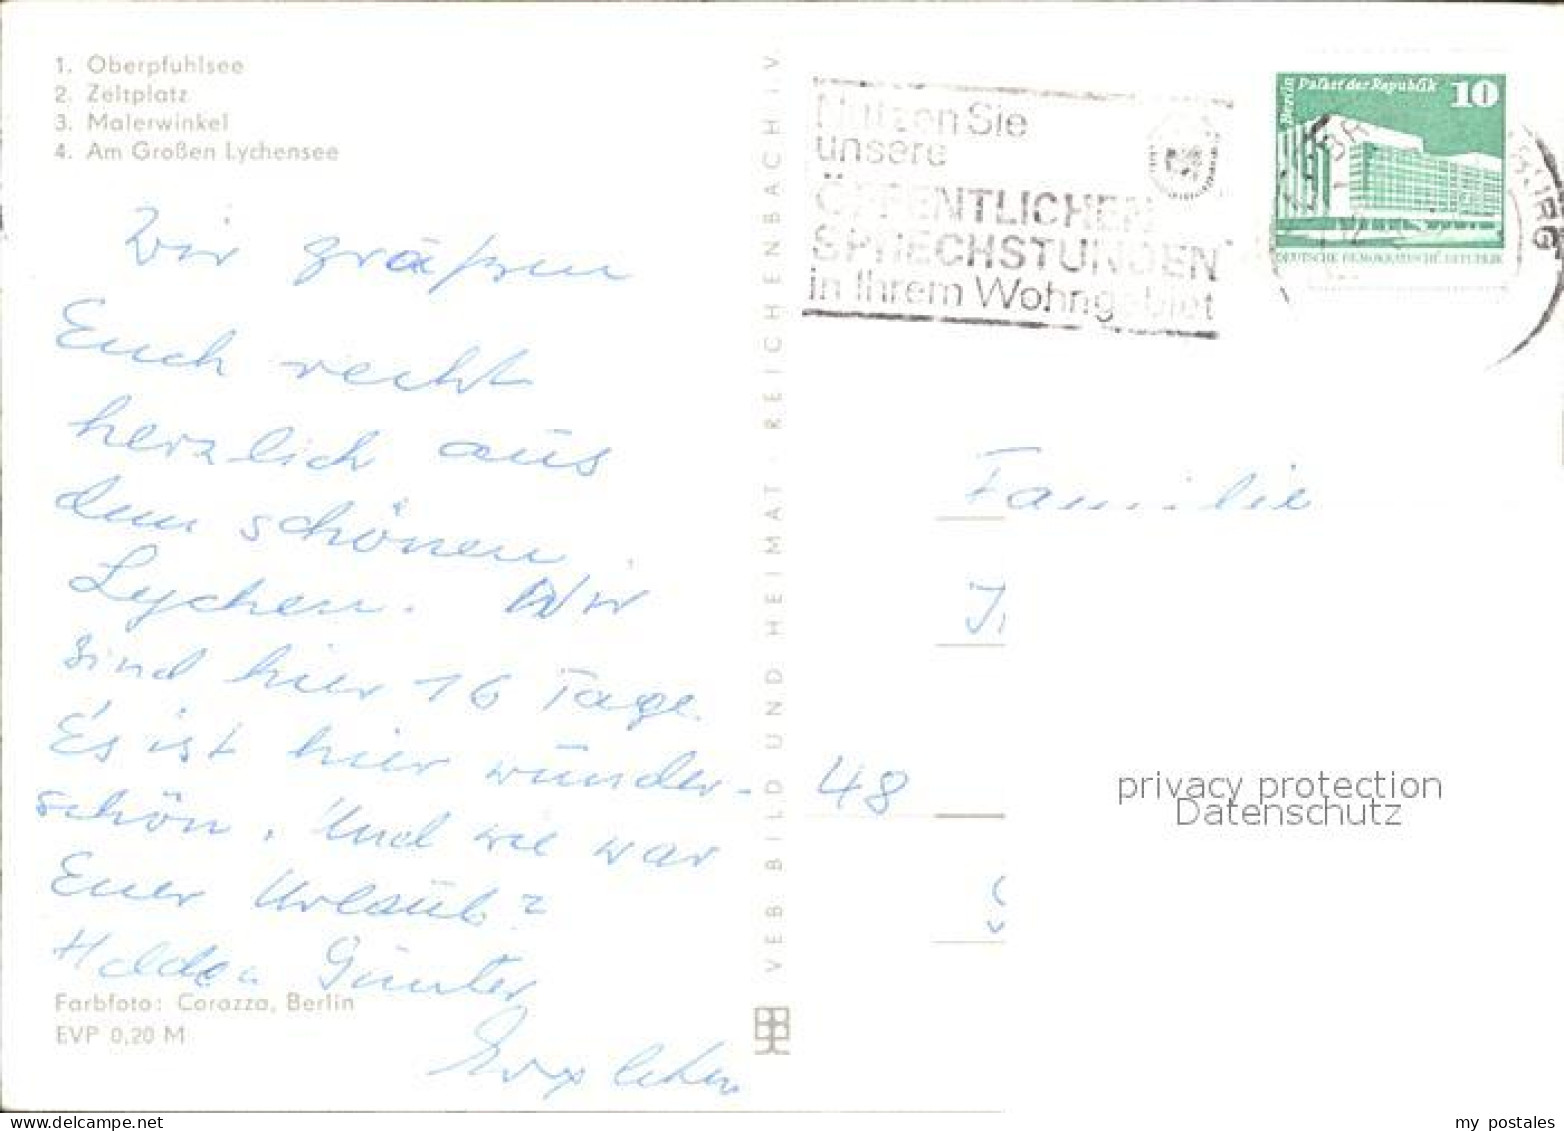 1. Oberpfuhlsee
2. Zeltplatz
3. Malerwinkel
4. Am Großen Lychensee
Wir grüßen
Euch recht
herzlich aus
dem schönen
Lychen. Wir
sind hier 16 Tage.
Es ist hier wunder-
schön. Und wie war
Euer Urlaub?
Günter
Farbfoto: Corazza, Berlin
EVP 0,20 M
VEB BILD UND HEIMAT · REICHENBACH i. V.
Nutzen Sie
unsere
ÖFFENTLICHEN
SPRECHSTUNDEN
in Ihrem Wohngebiet
Berlin Palast der Republik 10
DEUTSCHE DEMOKRATISCHE REPUBLIK
Familie
48
privacy protection
Datenschutz
www.delcampe.net
my_postales